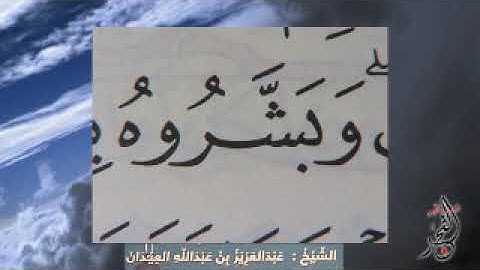 وَبَشَّرُوهُ
الشَّيْخُ : عَبْدَالعَزِيزُ بِنْ عَبْدَاللَّهِ العِيْدَان